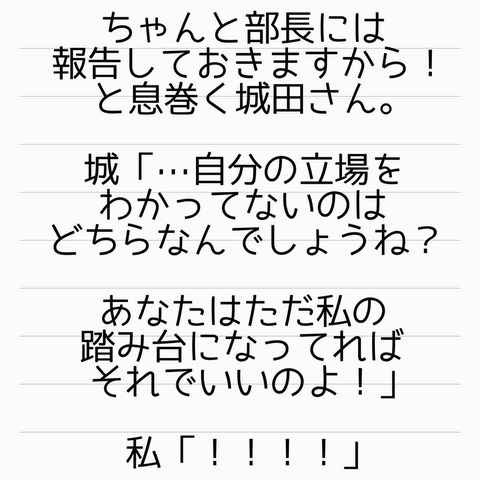 ちゃんと部長には
報告しておきますから！
と息巻く城田さん。
城「…自分の立場を
わかってないのは
どちらなんでしょうね？
あなたはただ私の
踏み台になってれば
それでいいのよ！」
私「！！！！」